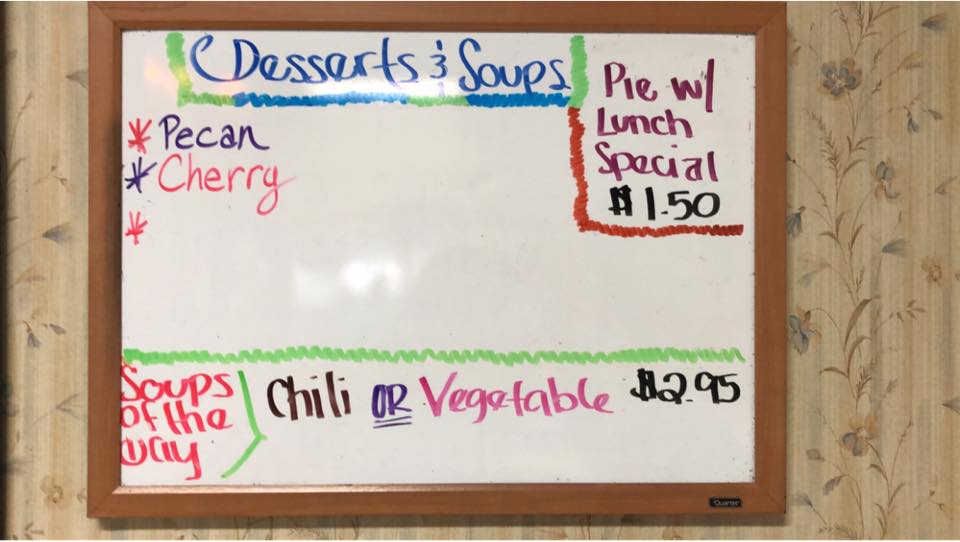 Desserts & Soups
Pie w/
Lunch
Special
$1.50
* Pecan
* Cherry
*
Soups
of the
Day
Chili OR Vegetable $2.95
Quartet